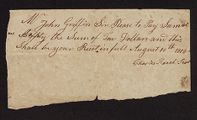 Mr John Griffin Sir Please to Pay Samel
the Sum of Dollars and this
Shall be your Recpt in full August 10th
Charles